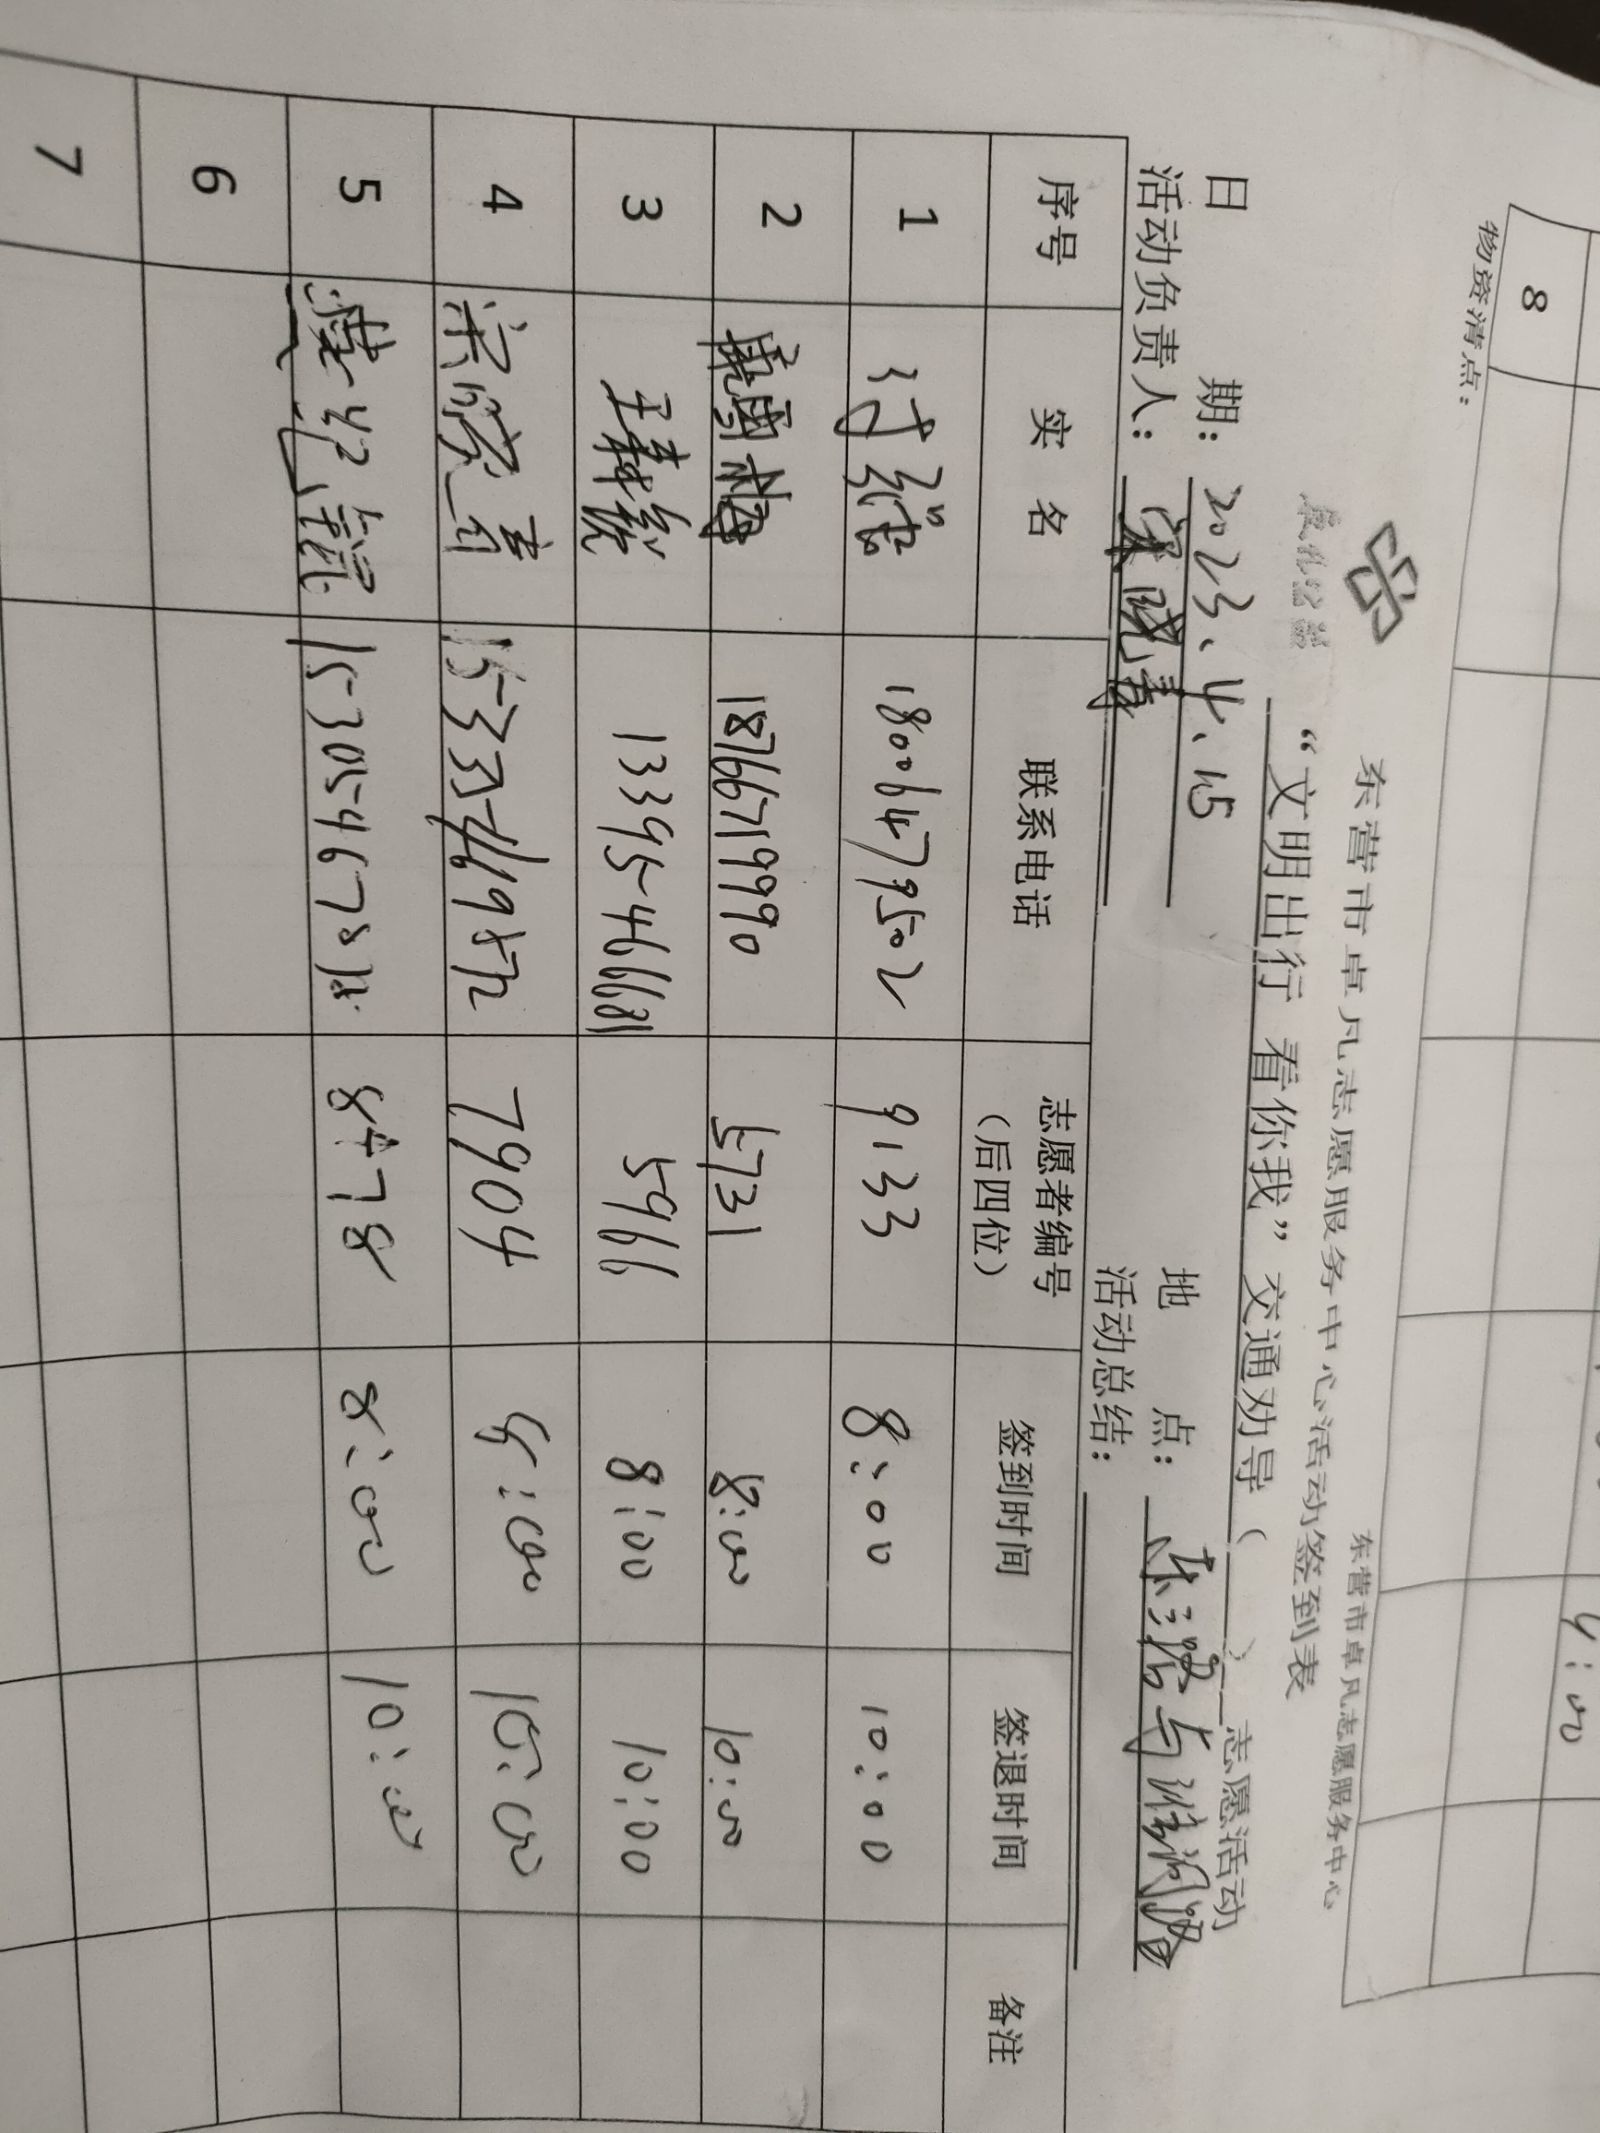 8
4:00
物资清点：
东营市卓凡志愿服务中心
东营市卓凡志愿服务中心活动签到表
“文明出行 看你我”交通劝导（ ）志愿活动
日 期：2023、4、15 地 点：
活动负责人：梁晓青 活动总结：
序号 实 名 联系电话 志愿者编号（后四位） 签到时间 签退时间 备注
1 18006479502 9133 8:00 10:00
2 18766719990 5731 8:00 10:00
3 13395466681 5966 8:00 10:00
4 梁晓青 7904 8:00 10:00
5 8478 8:00 10:00
6
7